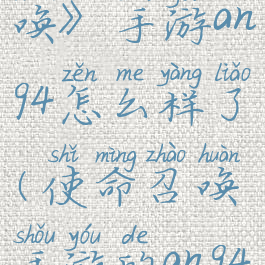 唤》手游an
zěn me yàng liǎo
94怎么样了
shǐ mìng zhào huàn
(使命召唤
shǒu yóu de
手游的an94